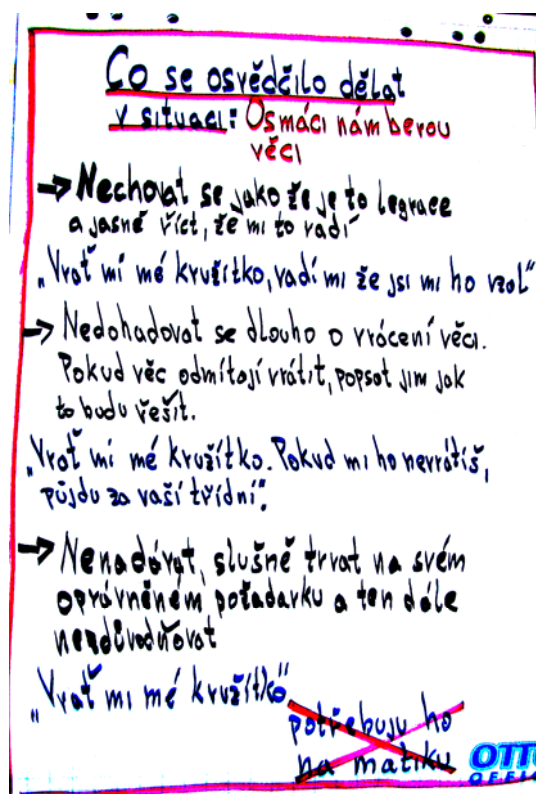 Co se osvědčilo dělat
v situaci: Osmáci nám berou
věci
→ Nechovat se jako že je to legrace
a jasně říct, že mi to vadí
„Vrať mi mé kružítko, vadí mi že jsi mi ho vzal"
→ Nedohadovat se dlouho o vrácení věci.
Pokud věc odmítají vrátit, popsat jim jak
to budu řešit.
„Vrať mi mé kružítko. Pokud mi ho nevrátíš,
půjdu za vaší třídní".
→ Nenadávat, slušně trvat na svém
oprávněném požadavku a ten dále
nezdůvodňovat
„Vrať mi mé kružítko"
potřebuju ho
na matiku
OTTO
OFFI